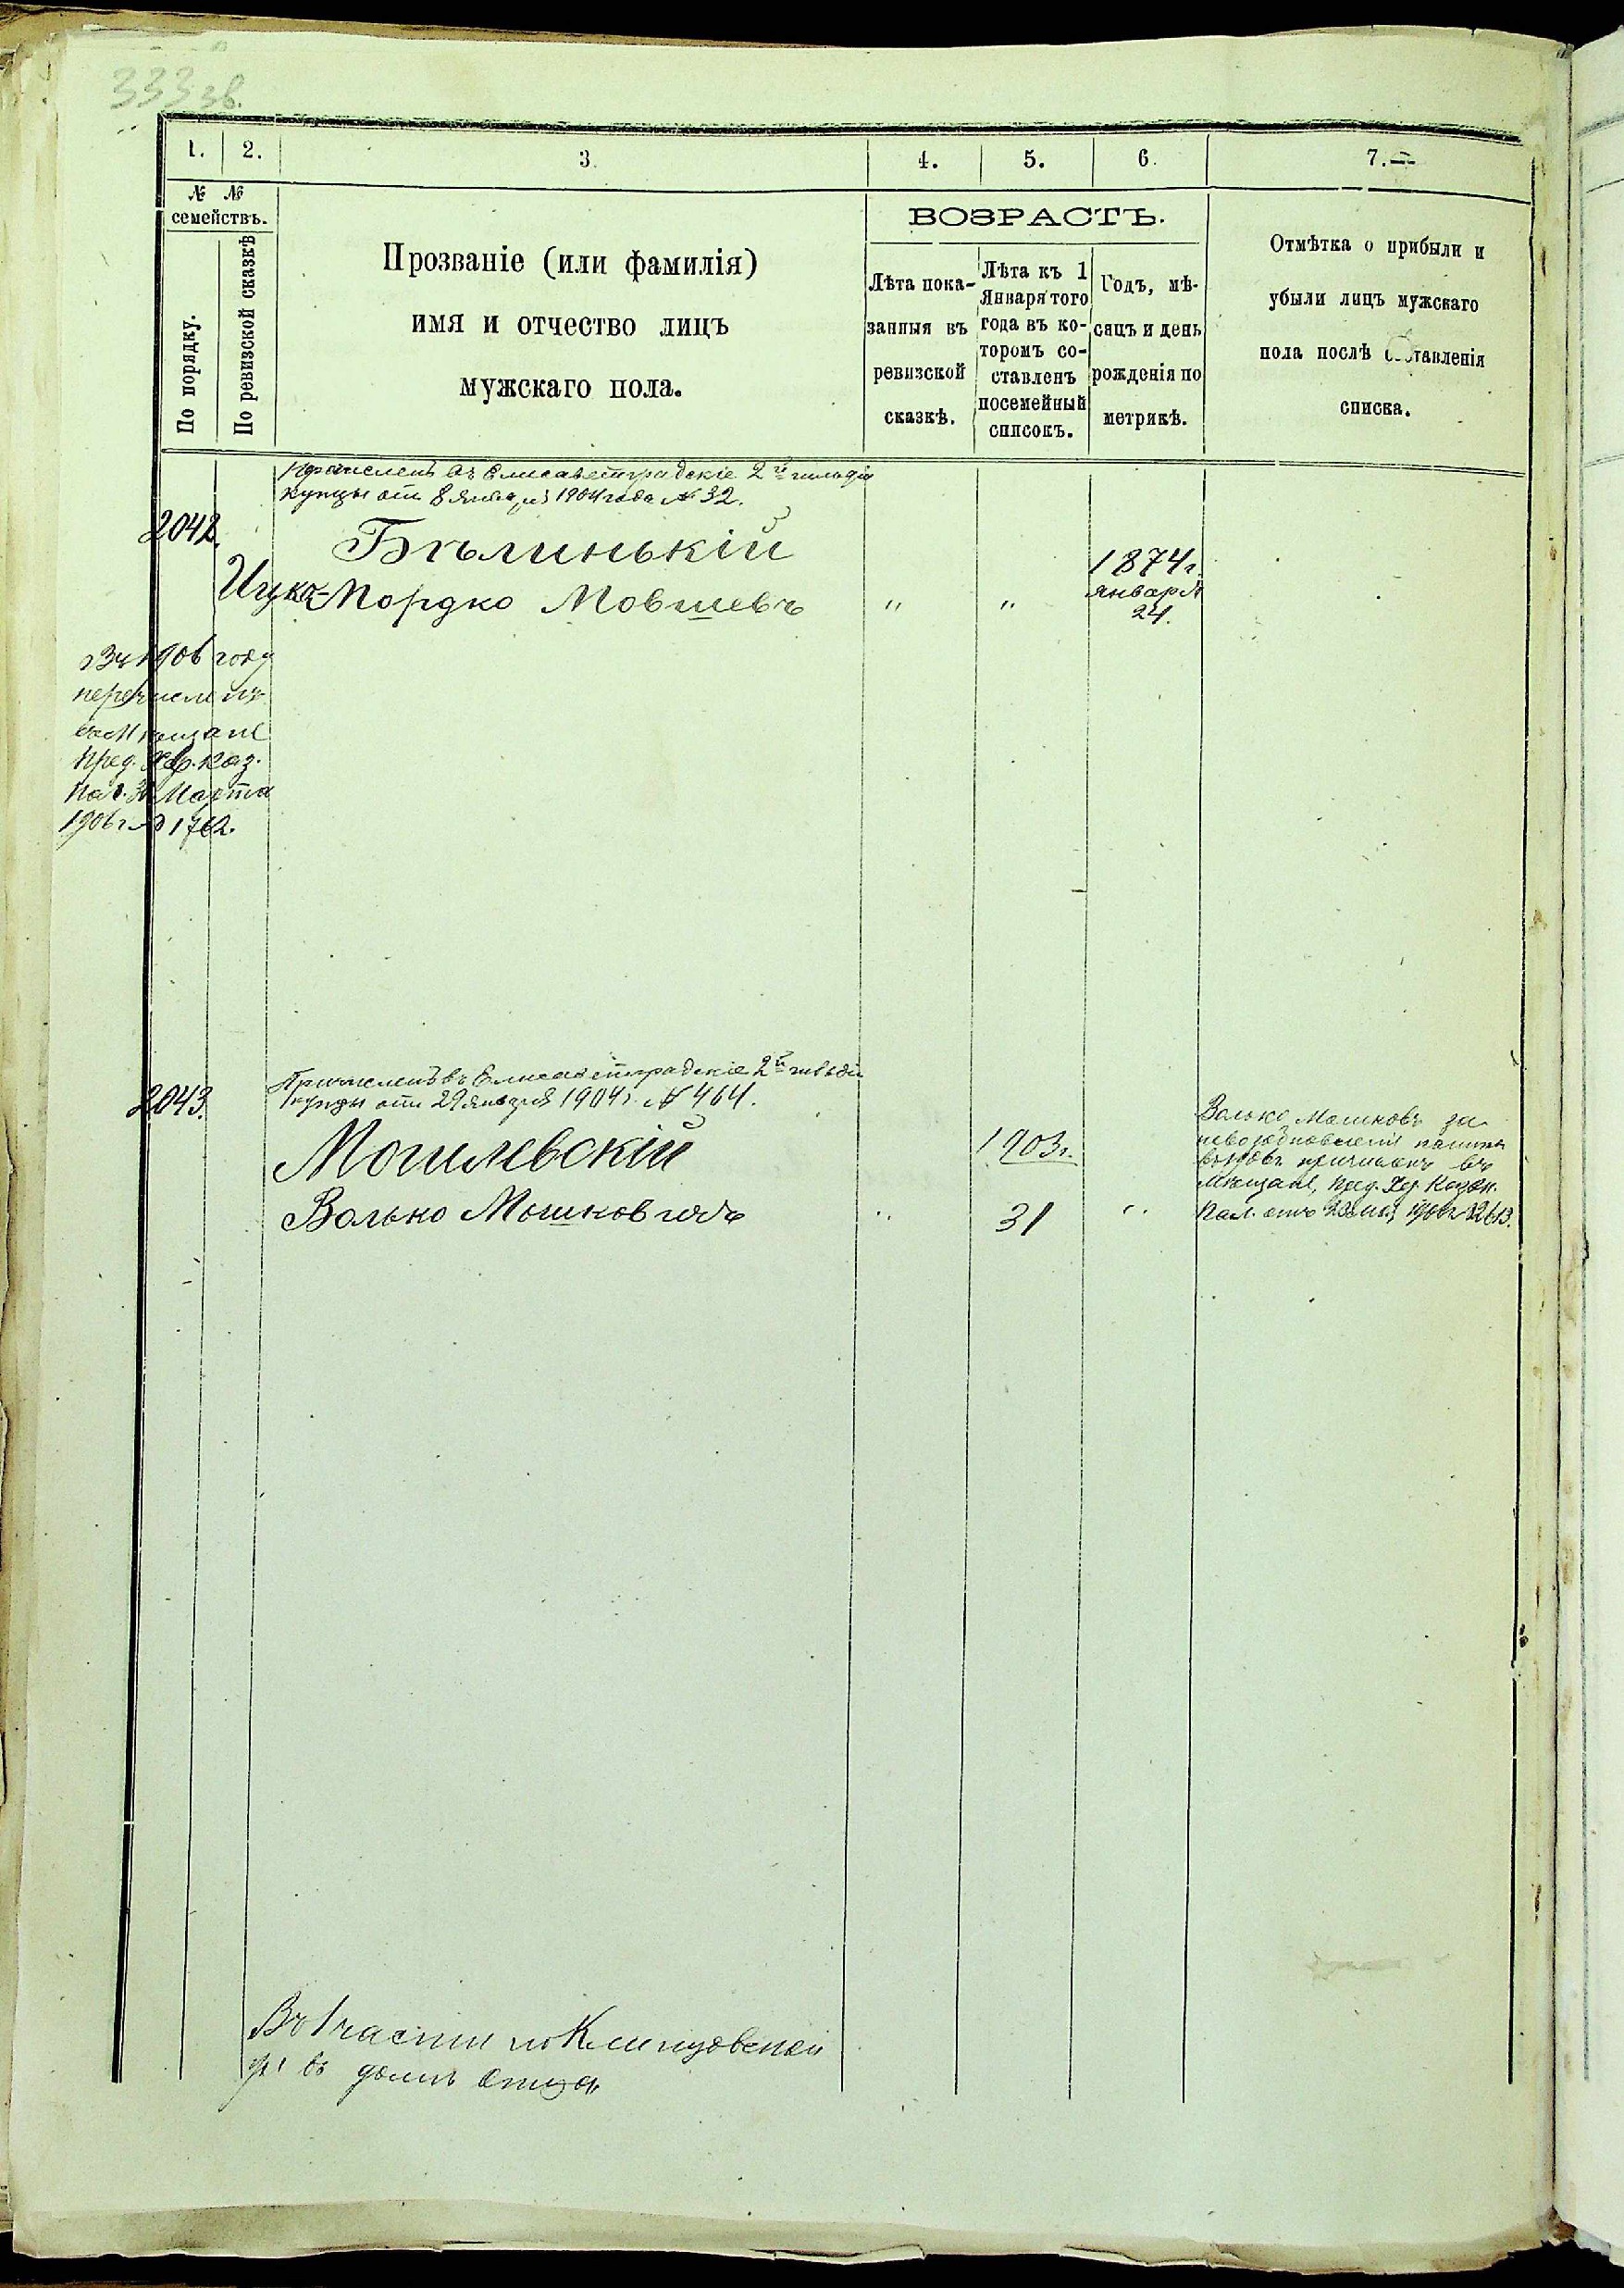 333 зв.
1. 2. 3. 4. 5. 6. 7.
№ №
семействъ.
По порядку.
По ревизской сказкѣ
Прозваніе (или фамилія)
имя и отчество лицъ
мужскаго пола.
ВОЗРАСТЪ.
Лѣта пока-
занныя въ
ревизской
сказкѣ.
Лѣта къ 1
Января того
года въ ко-
торомъ со-
ставленъ
посемейный
списокъ.
Годъ, мѣ-
сяцъ и день
рожденія по
метрикѣ.
Отмѣтка о прибыли и
убыли лицъ мужскаго
пола послѣ составленія
списка.
Причисленъ въ Елисаветградскіе 2й гильдіи
купцы отъ 8 января 1904 года № 32.
2042.
Бѣлинькій
Ицко-Мордко Мовшевъ " "
1874 г.
января
24.
Въ 1906 году
перечисленъ
въ Мѣщане
пред. Хер. Каз.
Пал. Марта
1906 г. №
2043.
Причисленъ въ Елисаветградскіе 2й гильдіи
купцы отъ 29 января 1904 г. № 464.
Могилевскій 1903 г.
Волько Мошковъ " 31 "
Волько Мошковъ за
невозобновленіе
причисленъ въ
Мѣщане, пред. Хер. Казен.
Пал. отъ
Въ 1 части по Клинцовской
ул. въ домѣ отца